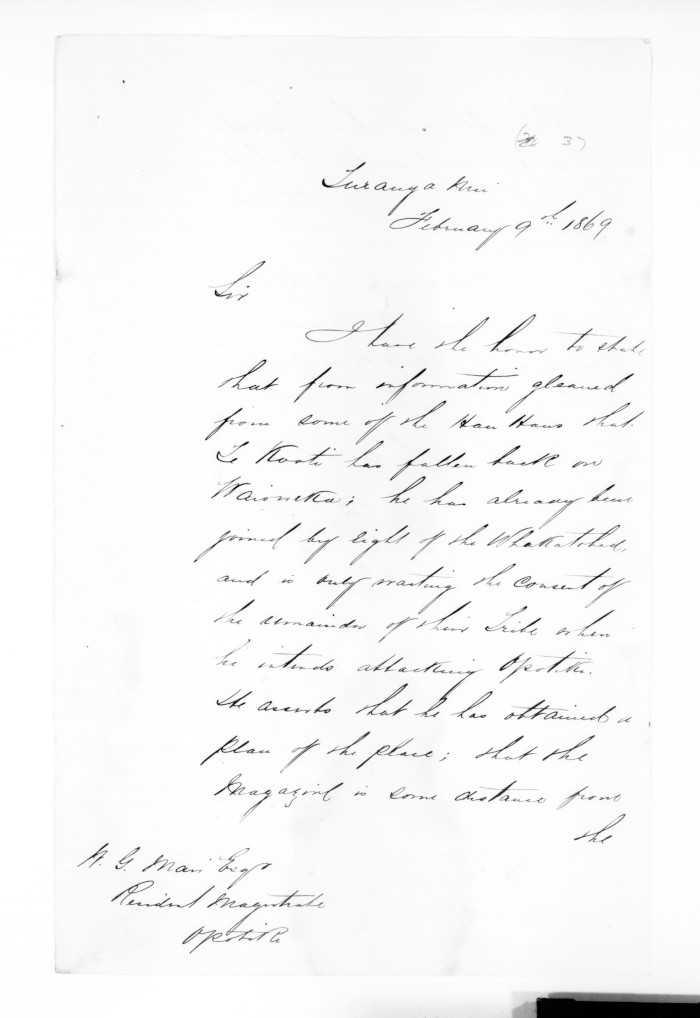 37
Turanga nui
February 9th 1869
Sir
I have the honor to state
that from information gleaned
from some of the Hau Haus that
Te Kooti has fallen back on
Waioweka; he has already been
joined by eight of the Whakatohea,
and is only waiting the consent of
the remainder of their Tribe when
he intends attacking Opotiki.
He asserts that he has obtained a
plan of the place; that the
Magazine is some distance from
the
W. G. Mair Esqr
Resident Magistrate
Opotiki